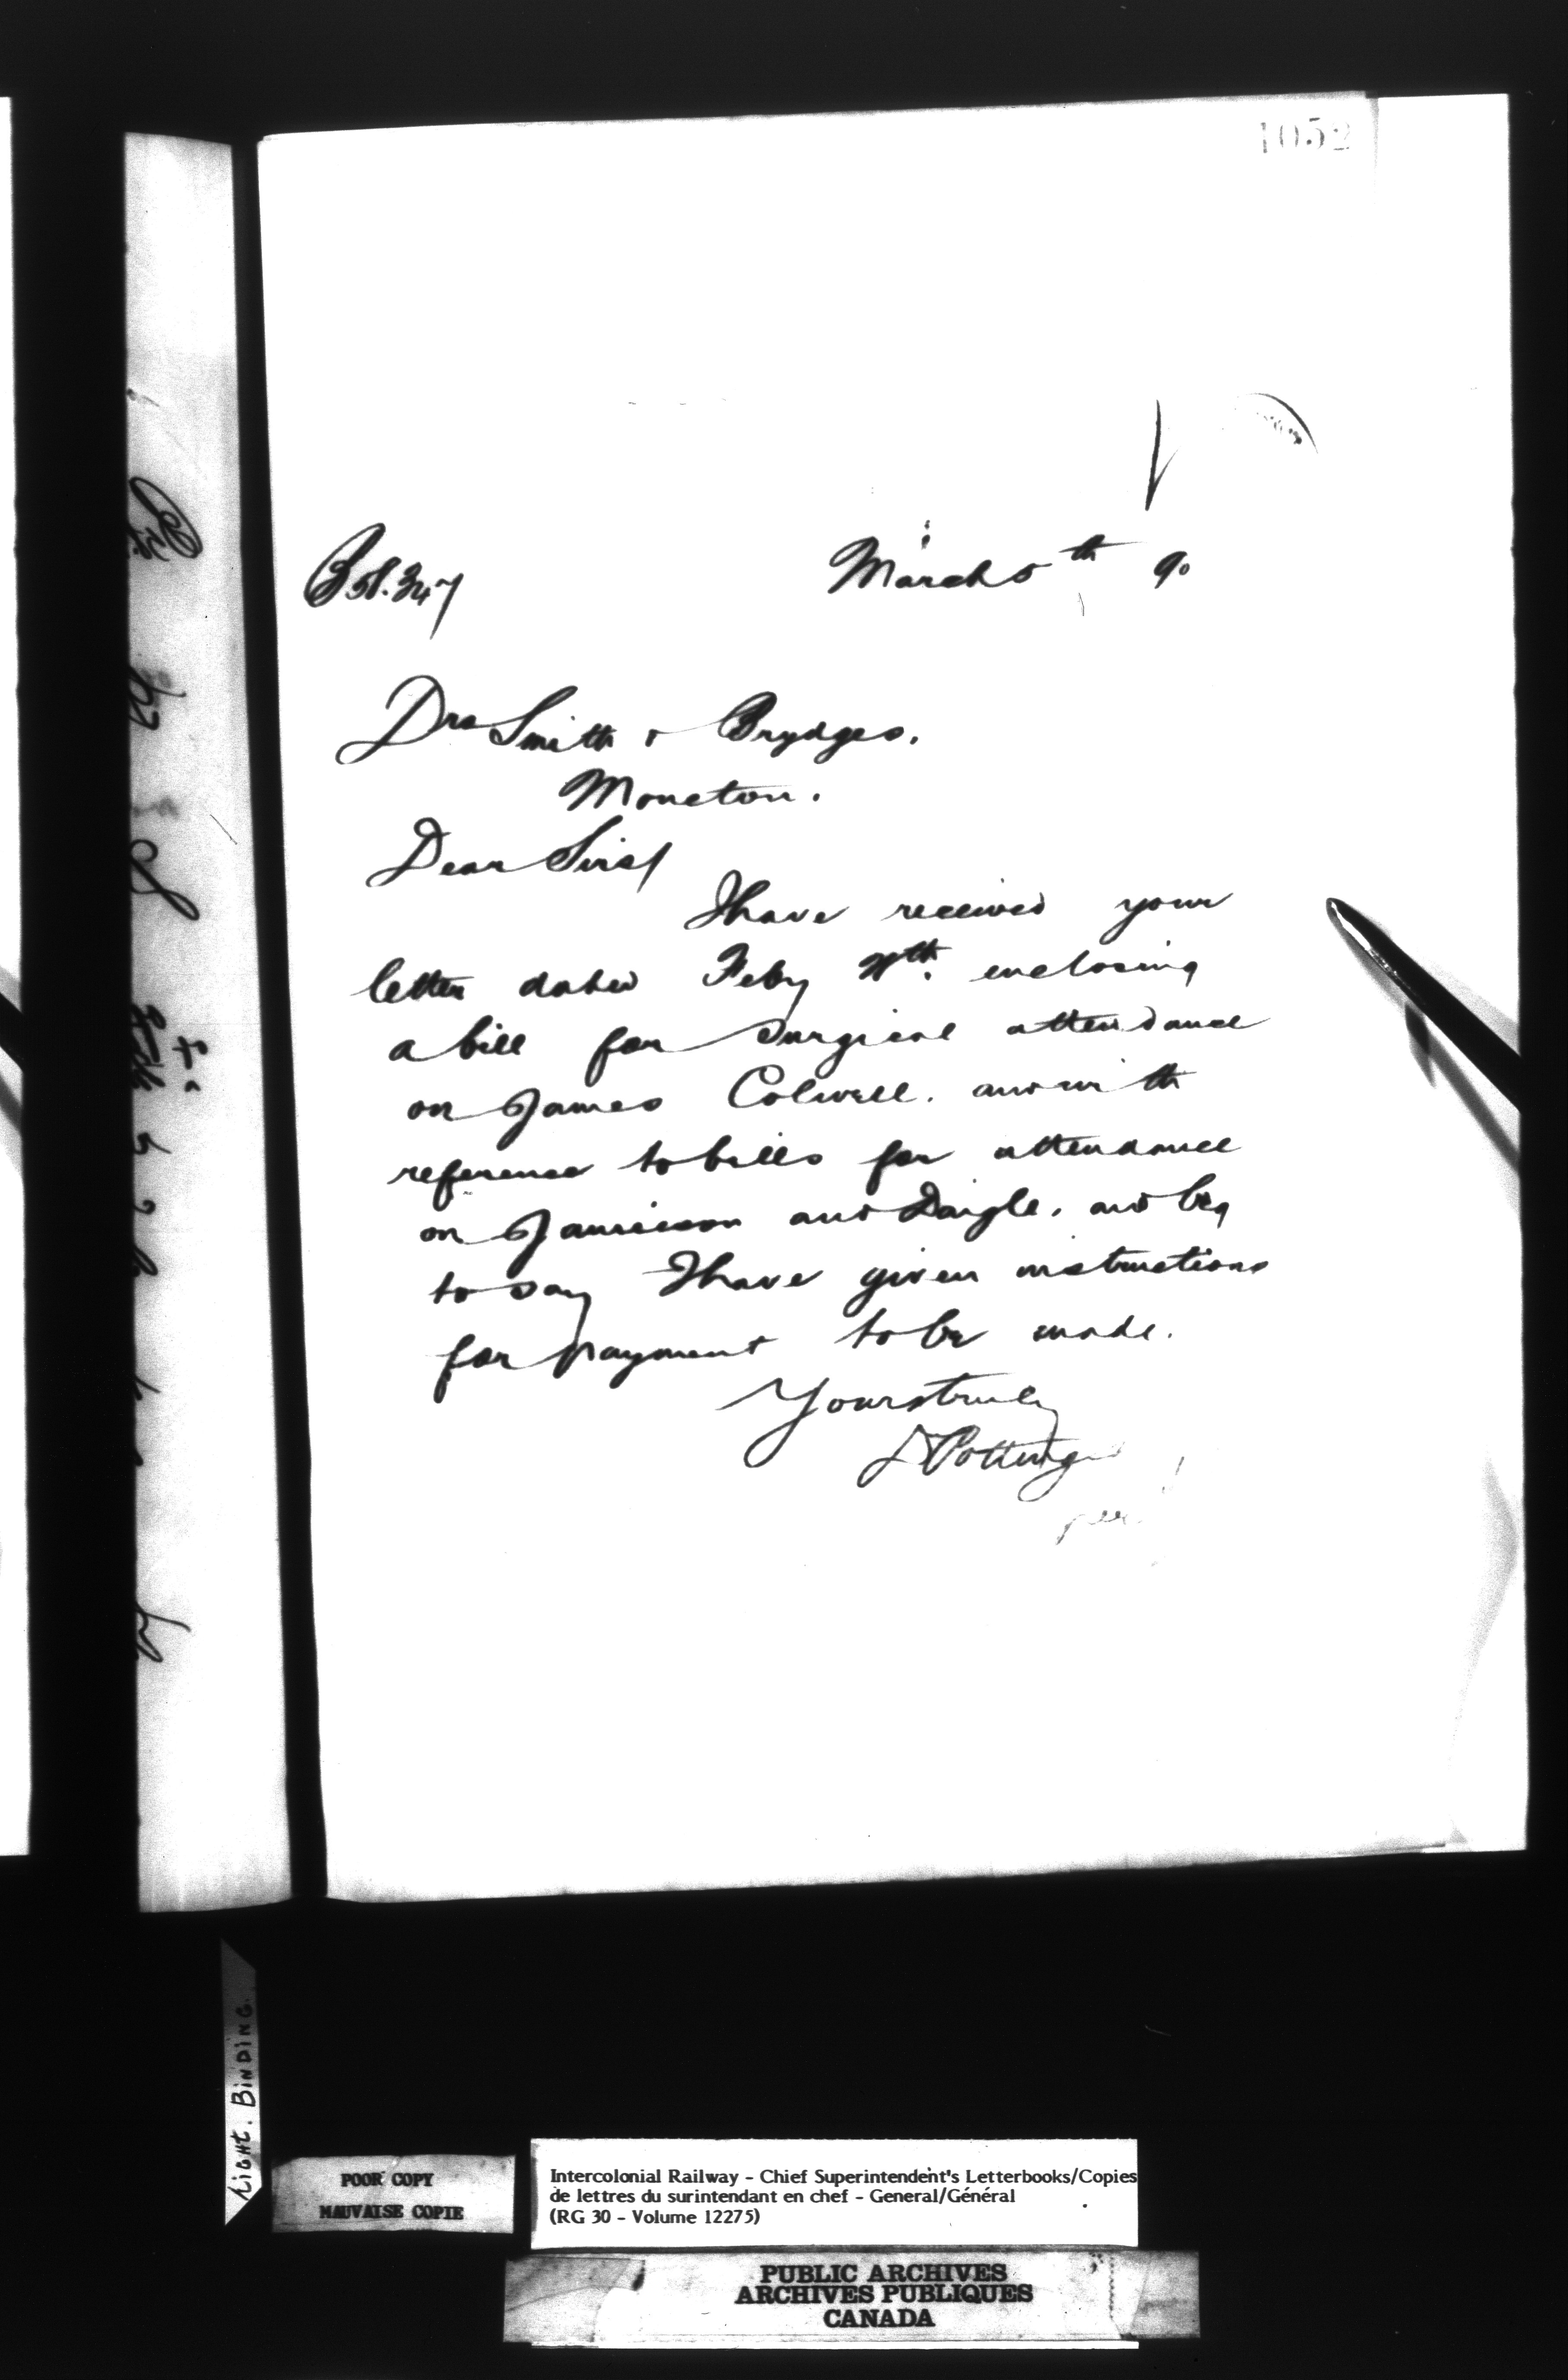 1052
March 5th 90
Drs Smith & Brydges.
Moncton.
Dear Sirs/
I have received your
letter dated Feby enclosing
a bill for Surgical attendance
on James Colwell. and with
reference to bills for attendance
on Jamieson and Daigle. and beg
to say I have given instructions
for payment to be made.
Yours truly
D Pottinger
per
LIGHT. BINDING.
POOR COPY
MAUVAISE COPIE
Intercolonial Railway - Chief Superintendent's Letterbooks/Copies
de lettres du surintendant en chef - General/Général
(RG 30 - Volume 12275)
PUBLIC ARCHIVES
ARCHIVES PUBLIQUES
CANADA